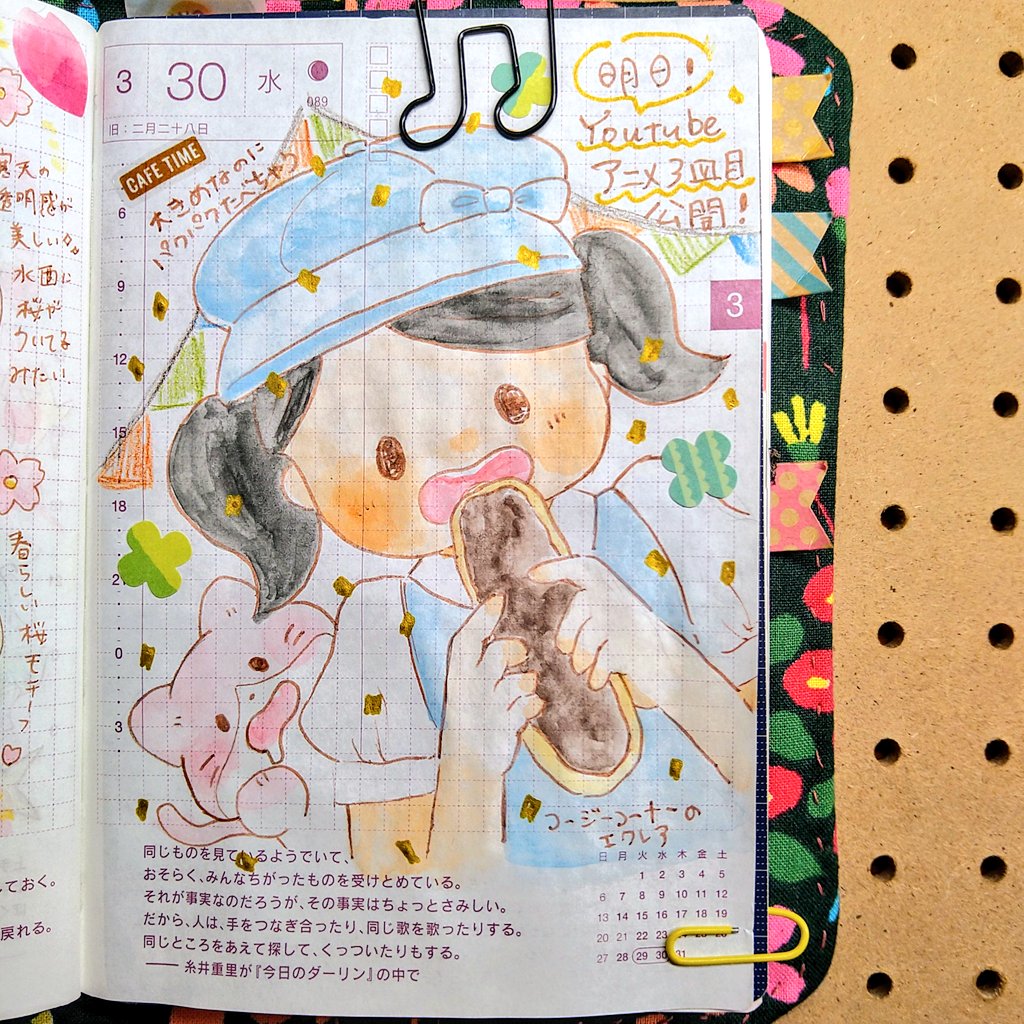 寒天の
透明感が
美しい
水面に
桜が
ういてる
みたい!
春らしい桜モチーフ
ておく。
戻れる。
3 30 水
089
旧:二月二十八日
CAFE TIME
大きめなのに
パクパクたべちゃう
明日!
Youtube
アニメ3皿目
公開!
3
6
9
12
15
18
2
0
3
コージーコーナーの
エクレア
同じものを見ているようでいて、
おそらく、みんなちがったものを受けとめている。
それが事実なのだろうが、その事実はちょっとさみしい。
だから、人は、手をつなぎ合ったり、同じ歌を歌ったりする。
同じところをあえて探して、くっついたりもする。
—— 糸井重里が『今日のダーリン』の中で
日 月 火 水 木 金 土
1 2 3 4 5
6 7 8 9 10 11 12
13 14 15 16 17 18 19
20 21 22 23 24 25 26
27 28 29 30 31